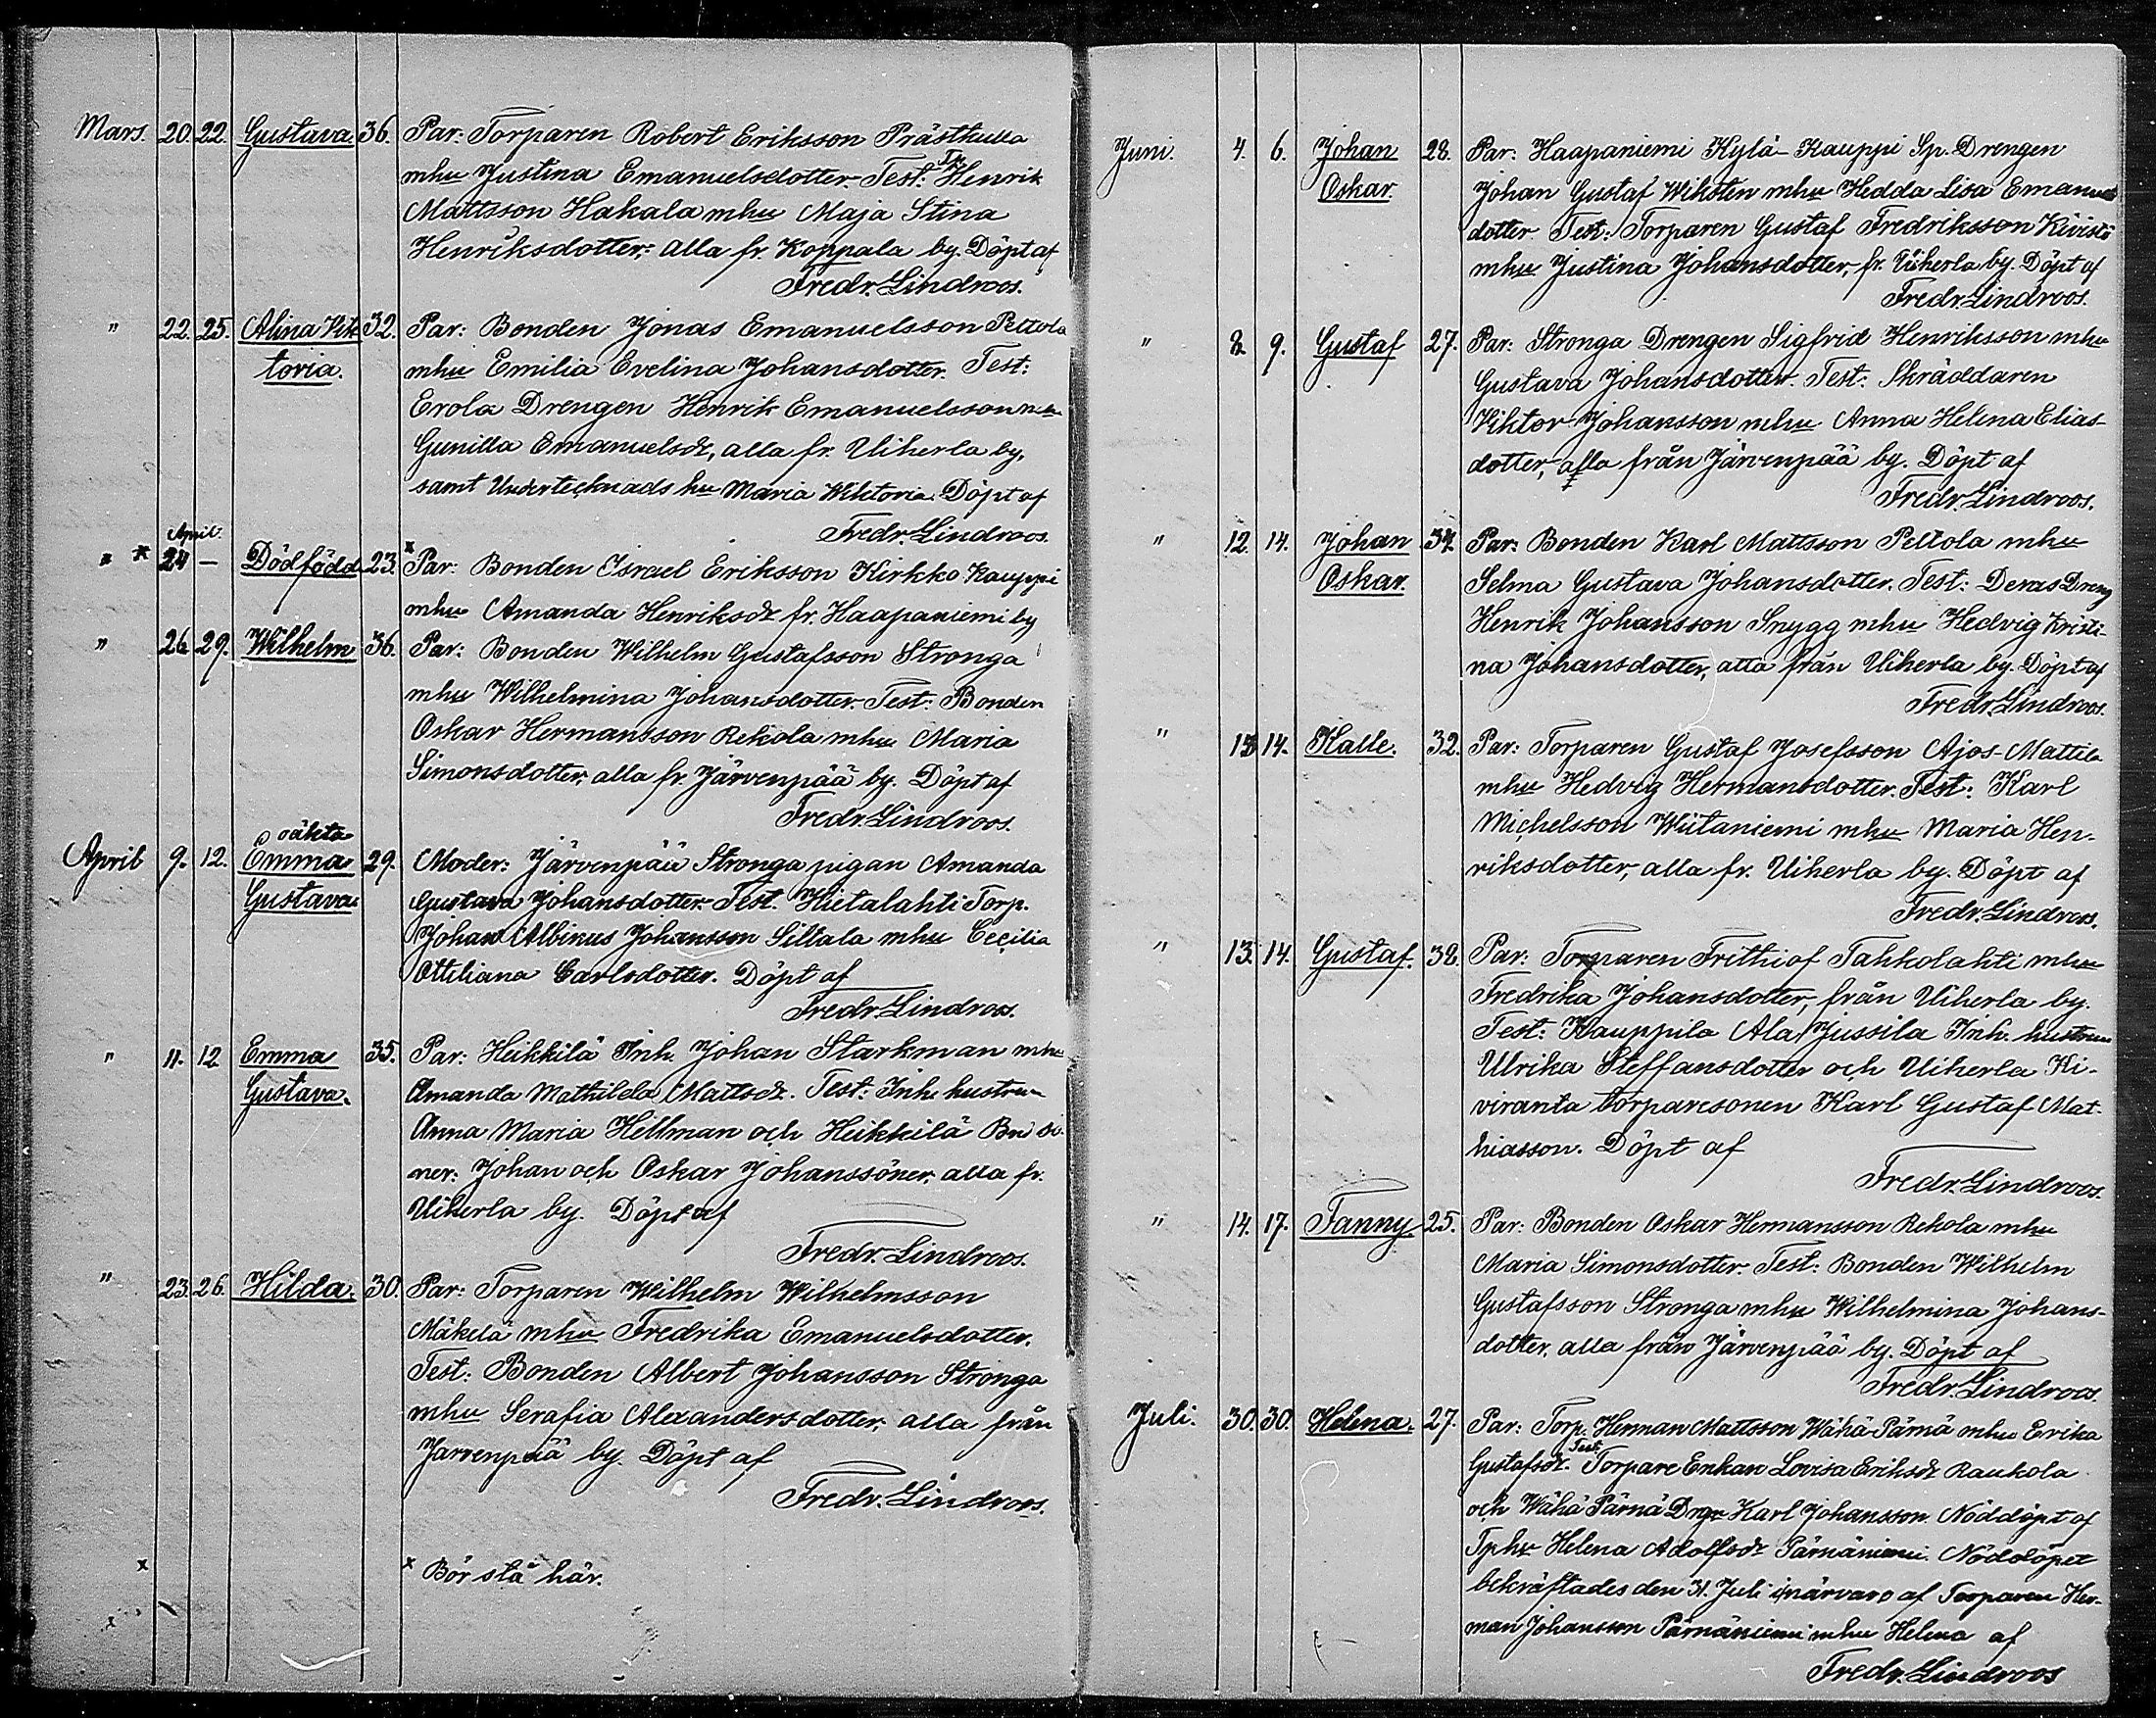 Mars. 20. 22. Gustava. 36. Par: Torparen Robert Eriksson Prästkulla
mhu Justina Emanuelsdotter. Test: Tp. Henrik
Mattsson Hakala mhu Maja Stina
Henriksdotter, alla fr. Koppala by. Döpt af
Fredr. Lindroos.
" 22. 25. Alina Vik- 32. Par: Bonden Jonas Emanuelsson Peltola
toria. mhu Emilia Evelina Johansdotter. Test:
Erola Drengen Henrik Emanuelsson
Gunilla Emanuelsdr, alla fr. Uiherla by,
samt Undertecknads hu Maria Wiktoria. Döpt af
Fredr. Lindroos.
April.
" x 24 — Dödfödd 23. x Par: Bonden Israel Eriksson Kirkko Kauppi
mhu Amanda Henriksdr fr. Haapaniemi by
" 26. 29. Wilhelm 36. Par: Bonden Wilhelm Gustafsson Stronga
mhu Wilhelmina Johansdotter. Test: Bonden
Oskar Hermansson Rekola mhu Maria
Simonsdotter, alla fr. Järvenpää by. Döpt af
Fredr. Lindroos.
oäkta
April 9. 12. Emma 29. Moder: Järvenpää Stronga pigan Amanda
Gustava Gustava Johansdotter. Test. Hietalahti Torp.
Johan Albinus Johansson Siltala mhu Cecilia
Ottiliana Carlsdotter. Döpt af
Fredr. Lindroos.
" 11. 12 Emma 35. Par: Heikkilä Inh. Johan Starkman mhu
Gustava. Amanda Mathilda Mattsdr. Test: Inh. hustrun
Anna Maria Hellman och Heikkilä Bnd sö-
ner: Johan och Oskar Johanssöner, alla fr.
Uiherla by. Döpt af
Fredr. Lindroos.
" 23. 26. Hilda. 30. Par: Torparen Wilhelm Wilhelmsson
Mäkelä mhu Fredrika Emanuelsdotter.
Test: Bonden Albert Johansson Stronga
mhu Serafia Alexandersdotter, alla från
Järvenpää by. Döpt af
Fredr. Lindroos.
x x Bör stå här.
Juni. 4. 6. Johan 28. Par: Haapaniemi Kylä-Kauppi Sp. Drengen
Oskar. Johan Gustaf Wiksten mhu Hedda Lisa Emanuels
dotter. Test: Torparen Gustaf Fredriksson Kivistö
mhu Justina Johansdotter, fr. Uiherla by. Döpt af
Fredr. Lindroos.
" 8. 9. Gustaf 27. Par: Stronga Drengen Sigfrid Henriksson mhu
Gustava Johansdotter. Test: Skräddaren
Viktor Johansson mhu Anna Helena Elias-
dotter, alla från Järvenpää by. Döpt af
Fredr. Lindroos.
" 12. 14. Johan 34. Par: Bonden Karl Mattsson Peltola mhu
Oskar. Selma Gustava Johansdotter. Test: Deras Dreng
Henrik Johansson Snygg mhu Hedvig Kristi-
na Johansdotter, alla från Uiherla by. Döpt af
Fredr. Lindroos.
" 13 14. Kalle. 32. Par: Torparen Gustaf Josefsson Ajos-Mattila
mhu Hedvig Hermansdotter. Test: Karl
Michelsson Wiitaniemi mhu Maria Hen-
riksdotter, alla fr. Uiherla by. Döpt af
Fredr. Lindroos.
" 13. 14. Gustaf. 38. Par: Torparen Frithiof Tahkolahti mhu
Fredrika Johansdotter, från Uiherla by.
Test: Kauppila Ala Jussila Inh. hustrun
Ulrika Steffansdotter och Uiherla Ki-
viranta torparesonen Karl Gustaf Mat-
hiasson. Döpt af
Fredr. Lindroos.
" 14. 17. Fanny. 25. Par: Bonden Oskar Hermansson Rekola mhu
Maria Simonsdotter. Test: Bonden Wilhelm
Gustafsson Stronga mhu Wilhelmina Johans-
dotter, alla från Järvenpää by. Döpt af
Fredr. Lindroos.
Juli. 30. 30. Helena. 27. Par: Torp. Herman Mattsson Wähä-Pärnä mhu Erika
Gustafsdr. Test. Torpare Enkan Lovisa Eriksdr Raukola
och Wähä Pärnä Drgn Karl Johansson. Nöddöpt af
Tphu Helena Adolfsdr Pärnäniemi. Nöddöpet
bekräftades den 31. Juli i närvaro af Torparen Her-
man Johansson Pärnäniemi mhu Helena af
Fredr. Lindroos